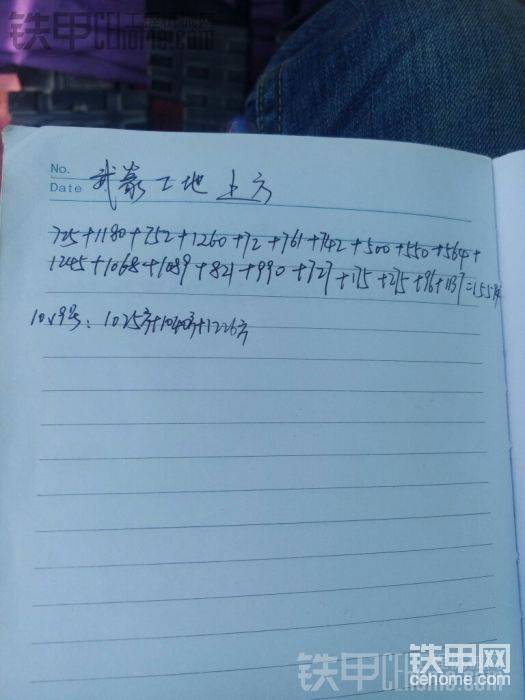 铁甲 CEhome.com
No.
Date
工地 土方
725+1180+752+1260+72+761+742+500+550+564+
1245+1068+1089+821+990+727+175+275+96+1137=
10.9号：1025方+1040方+1226方
铁甲网
cehome.com